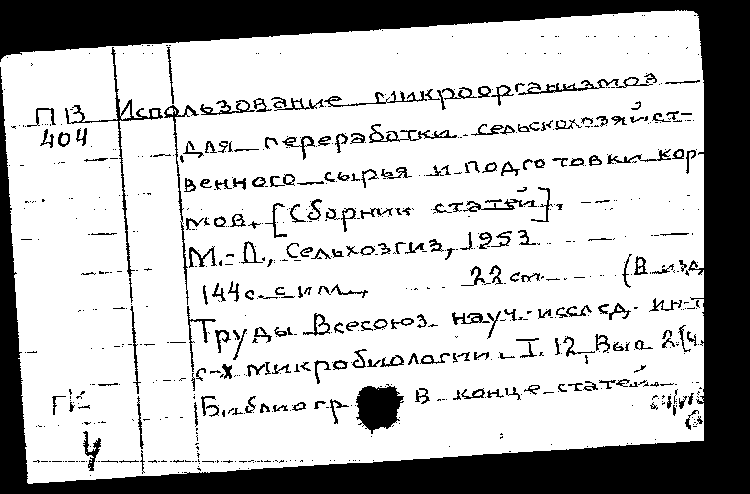 ПВ Использование микроорганизмов
404 для переработки сельскохозяйст-
венного сырья и подготовки кор-
мов. [Сборник статей].
М.-Л., Сельхозгиз, 1953
144 с. с илл., 22 см. (В изд.
Труды Всесоюз. науч.-исслед. ин-т
с-х микробиологии. Т. 12, Вып. 2
ГК Библиогр в конце статей
4